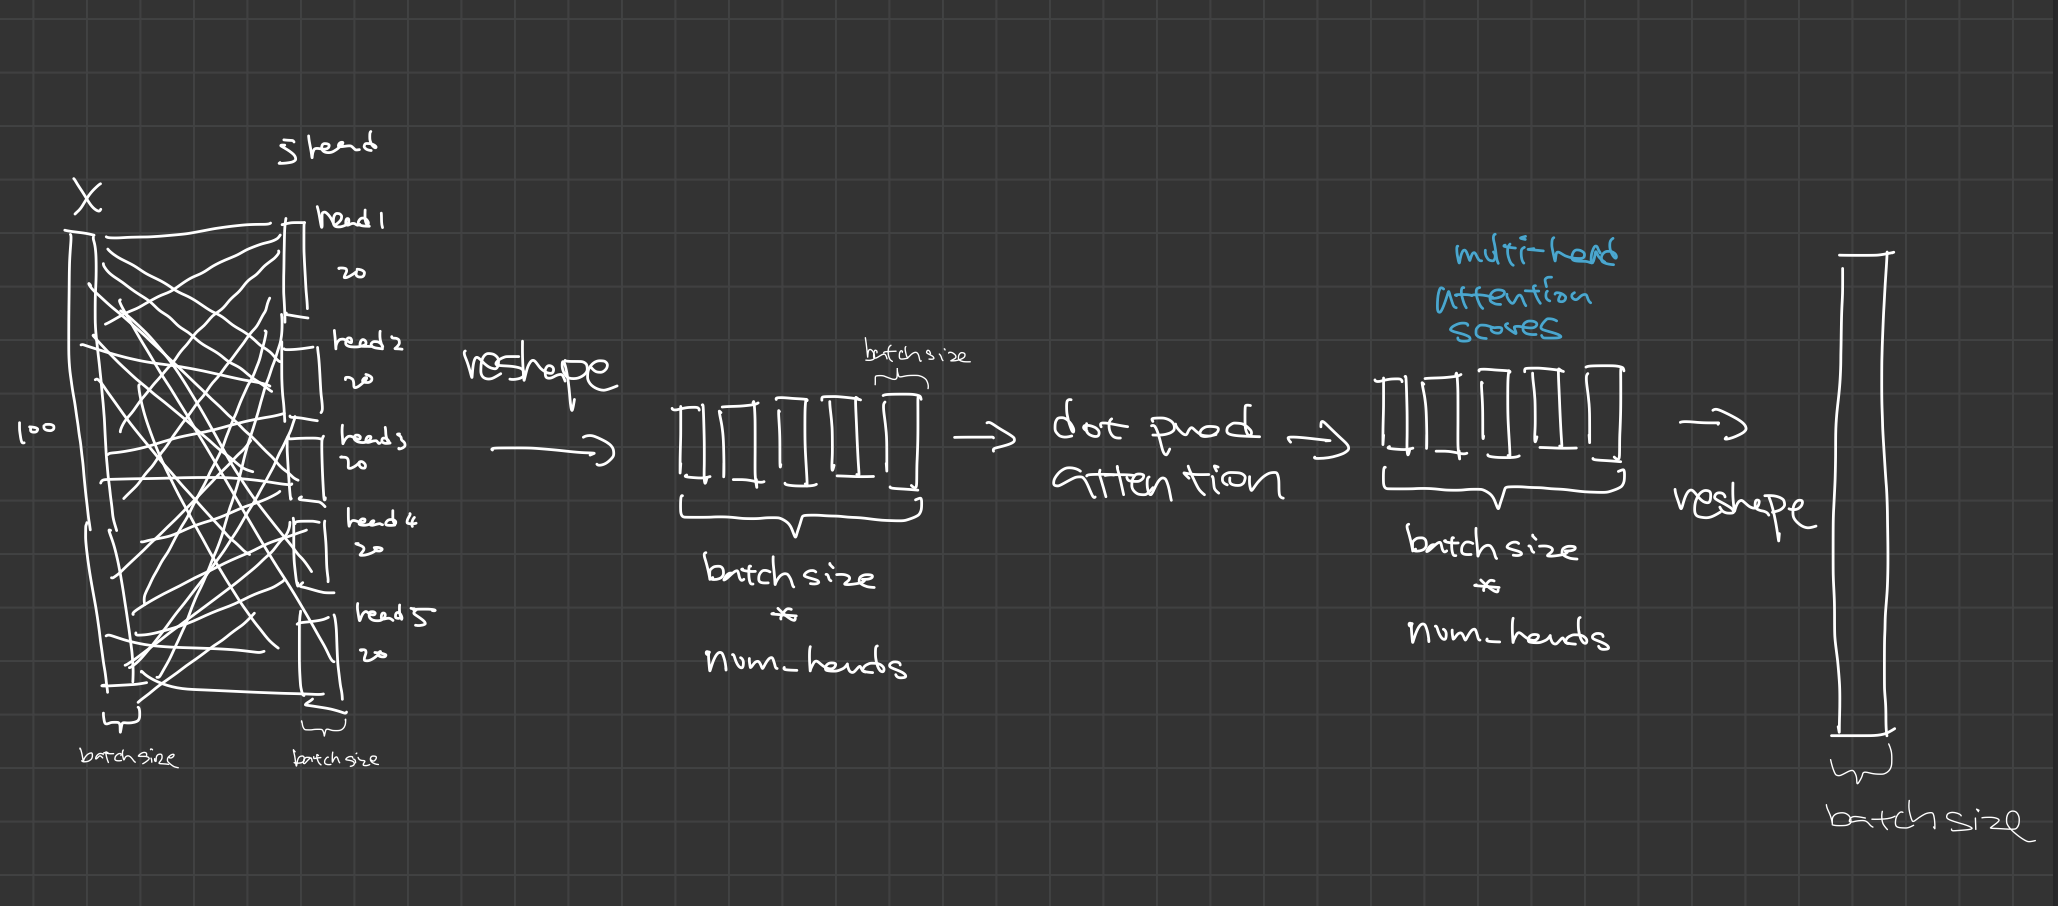 5 head
X
head 1
20
head 2
20
head 3
20
head 4
20
head 5
20
100
batch size
batch size
reshape
batch size
batch size
*
num_heads
dot prod
attention
multi-head
attention
scores
batch size
*
num_heads
reshape
batch size